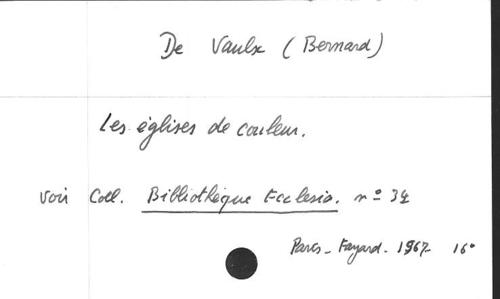 De Vaulx (Bernard)
Les églises de couleur.
voir Coll. Bibliothèque Ecclesia. nº 34
Paris - Fayard. 1967 16º